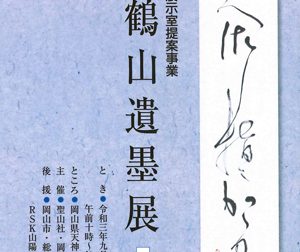 示室提案事業
鶴山遺墨展
とき●令和三年九
午前十時～
ところ●岡山県天神
主催●聖山社・岡
後援●岡山市・総
RSK山陽